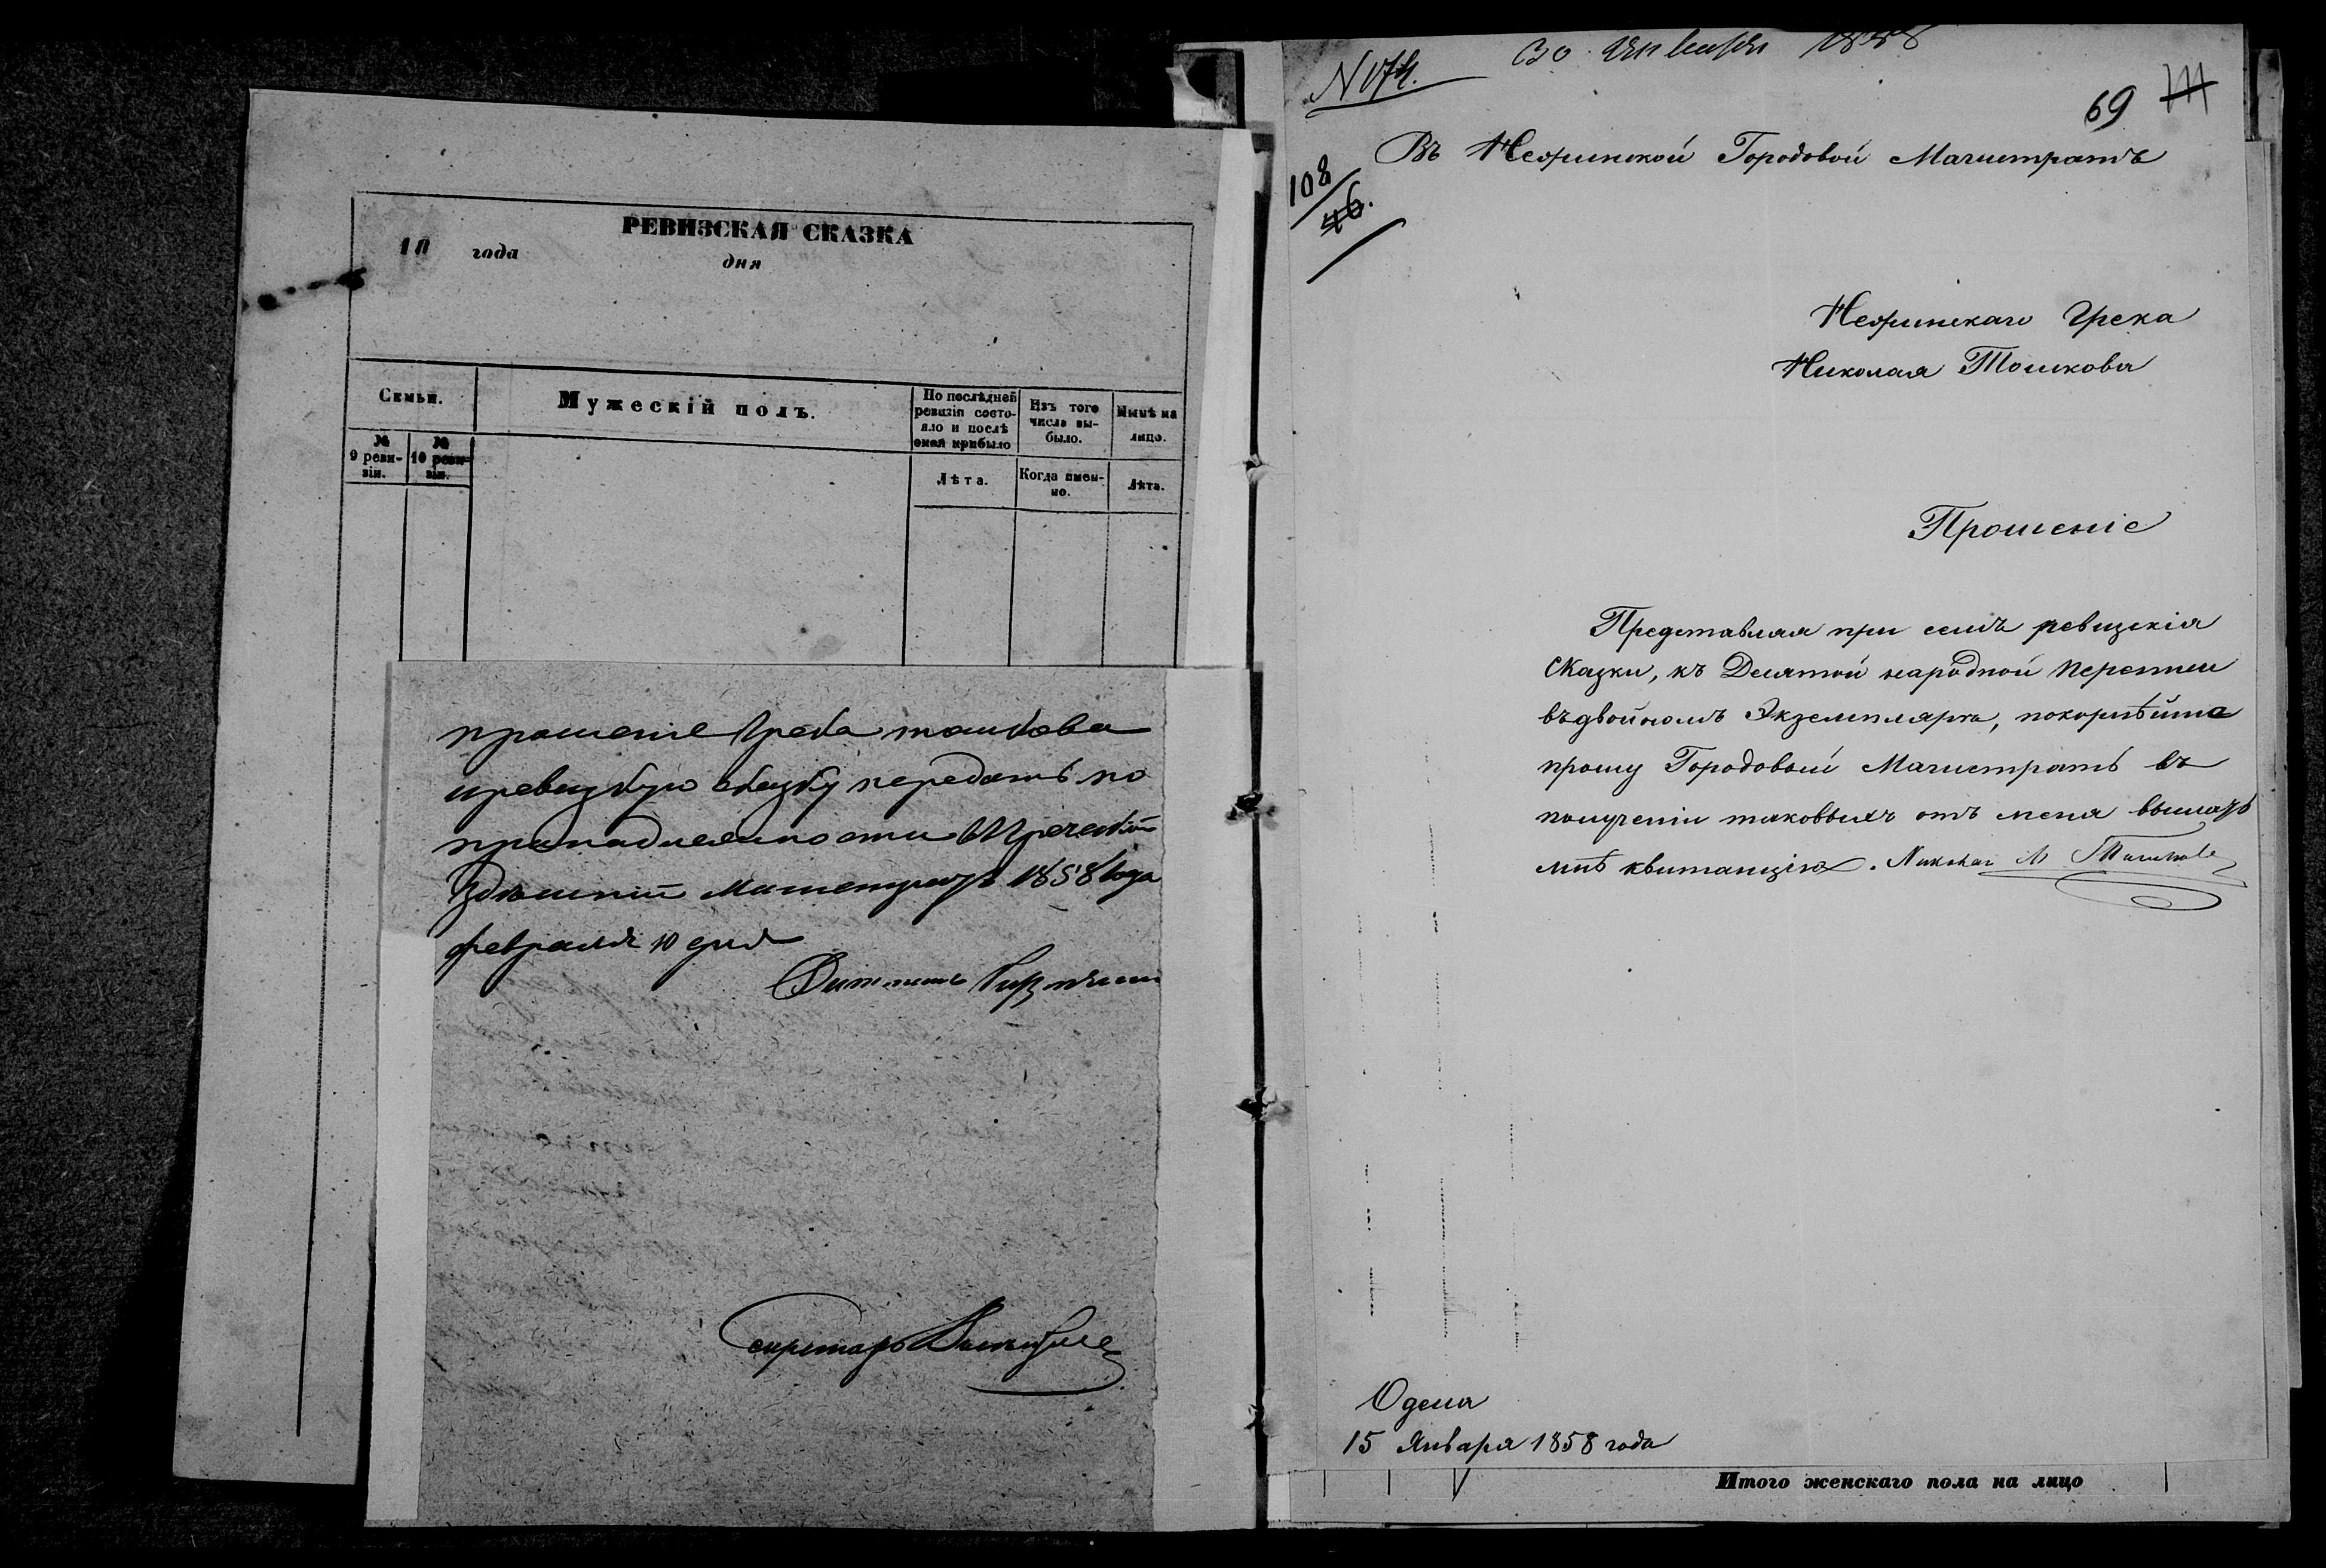 РЕВИЗСКАЯ СКАЗКА
18 года дня
Семьи.
Мужескій полъ.
По послѣдней ревизіи состояло и послѣ оной прибыло
Изъ того числа выбыло.
Нынѣ на лицо.
№ 9 ревизіи.
№ 10 ревизіи.
Лѣта.
Когда именно.
Лѣта.
прошеніе Грека тошкова
иревизкую сказку передать по
принадлежности въ Греческій
Здѣшній Магистратъ 1858 Года
февраля 10 дня
Секретарь
30 Января 1858
N 174.
69
108
46.
Въ Нежинской Городовой Магистратъ
Нежинскаго Грека
Николая Тошкова
Прошеніе
Представляя при семъ ревизскія
Сказки, къ Десятой народной переписи
въ двойномъ Экземплярѣ, покорнѣйше
прошу Городовый Магистратъ въ
полученіи таковыхъ отъ меня выслать
мнѣ квитанцію. Николай М Тошковъ
Одесса
15 Января 1858 года
Итого женскаго пола на лицо